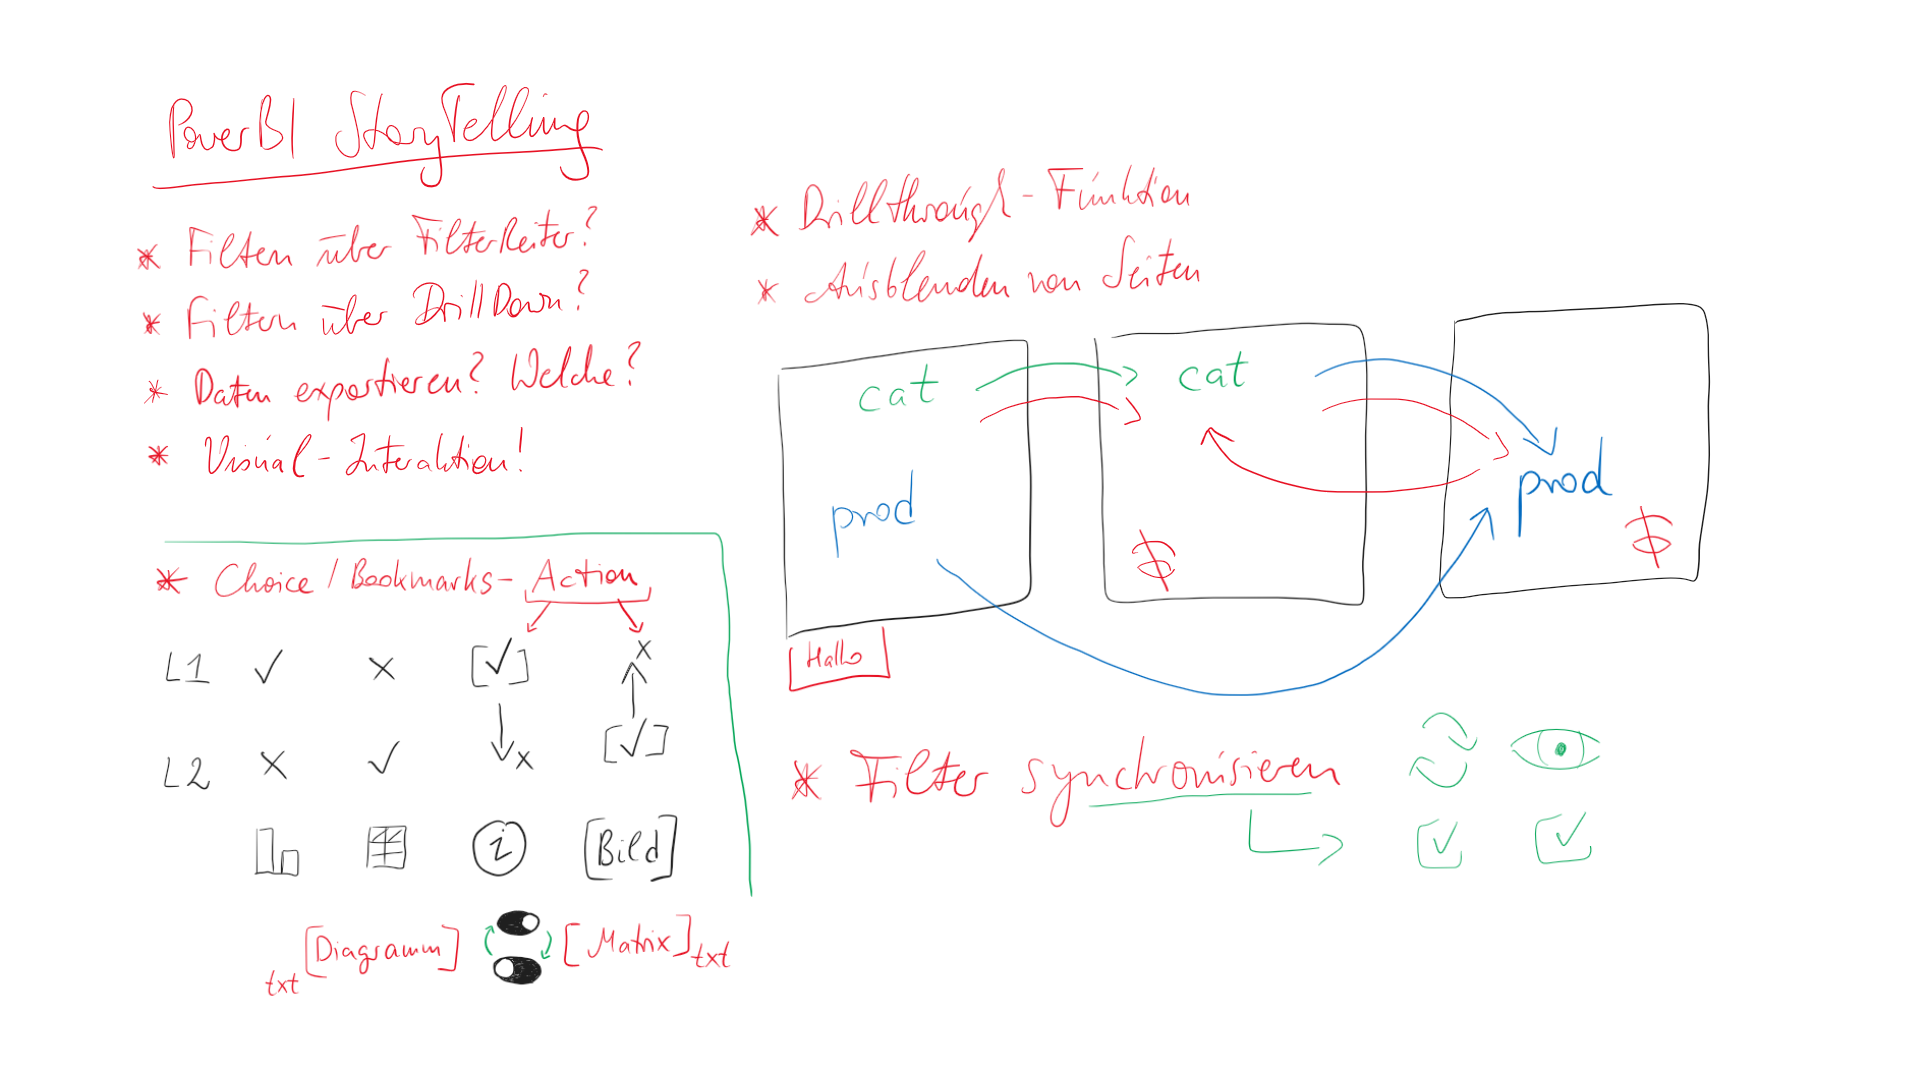 PowerBI StoryTelling
* Filtern über FilterReiter?
* Filtern über DrillDown?
* Daten exportieren? Welche?
* Visual-Interaktion!
* Choice / Bookmarks- Action
L1 ✓ x [✓] x
L2 x ✓ x [✓]
i [Bild]
txt [Diagramm] [Matrix] txt
* Drillthrough-Funktion
* Ausblenden von Seiten
cat cat
prod prod
Hallo
* Filter synchronisieren